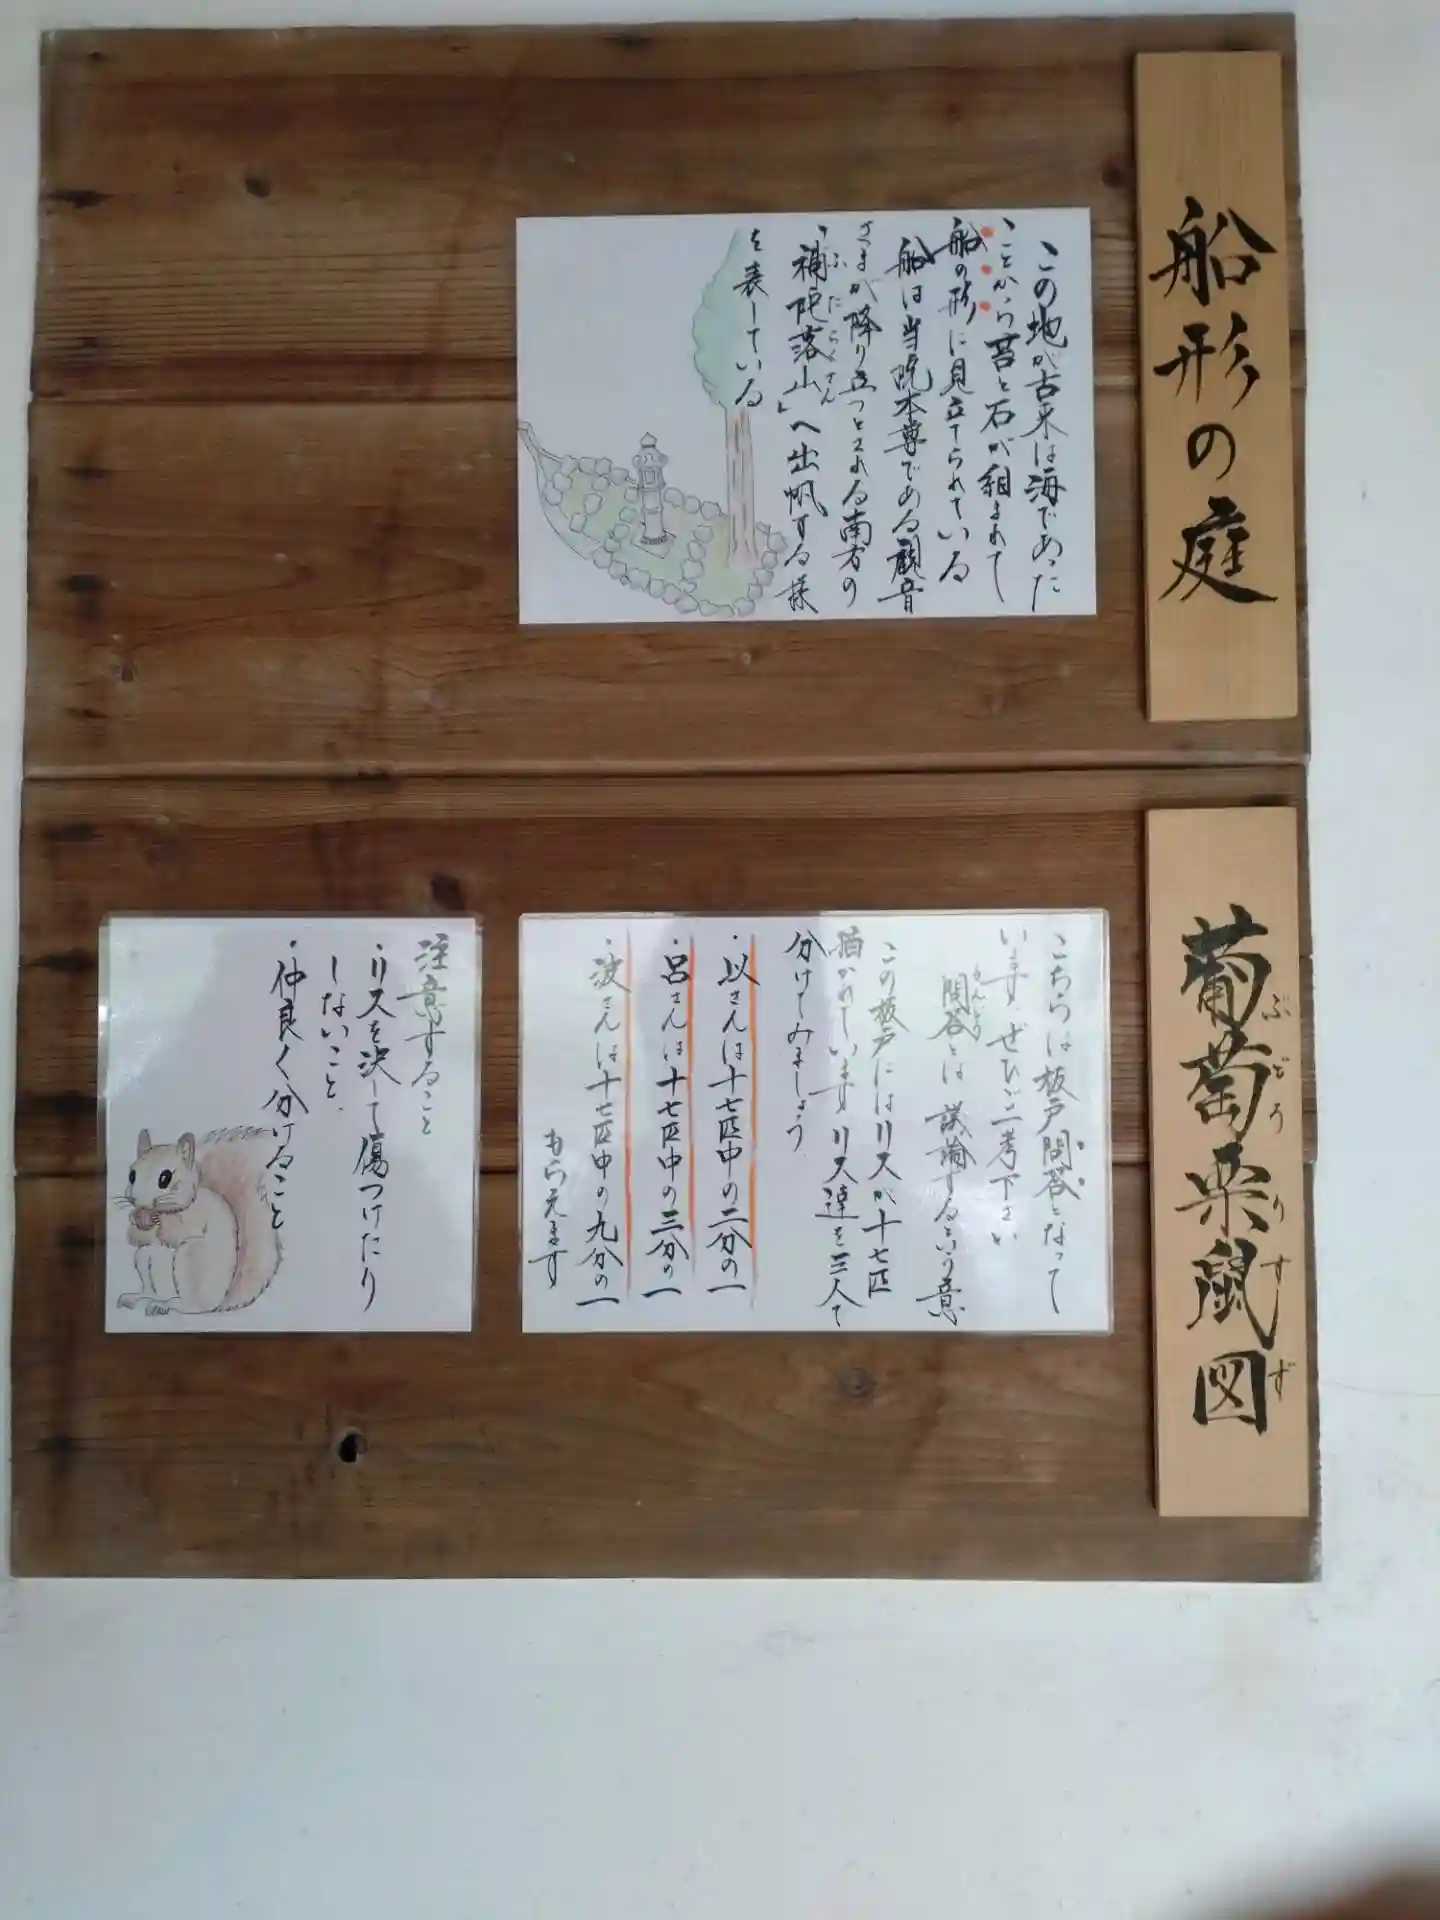 船形の庭
この地が古来は海であった
ことから苔と石が組まれて
船の形に見立てられている
船は当院本尊である観音
さまが降り立つとされる南方の
「補陀落山」へ出帆する様
ふだらくさん
を表している
葡萄栗鼠図
ぶどうりすず
こちらは板戸問答となって
います ぜひご一考下さい
問答とは議論するという意
もんどう
この板戸にはリスが十七匹
描かれています リス達を三人で
分けてみましょう
・以さんは十七匹中の二分の一
・呂さんは十七匹中の三分の一
・波さんは十七匹中の九分の一
もらえます
注意すること
・リスを決して傷つけたり
しないこと
・仲良く分けること